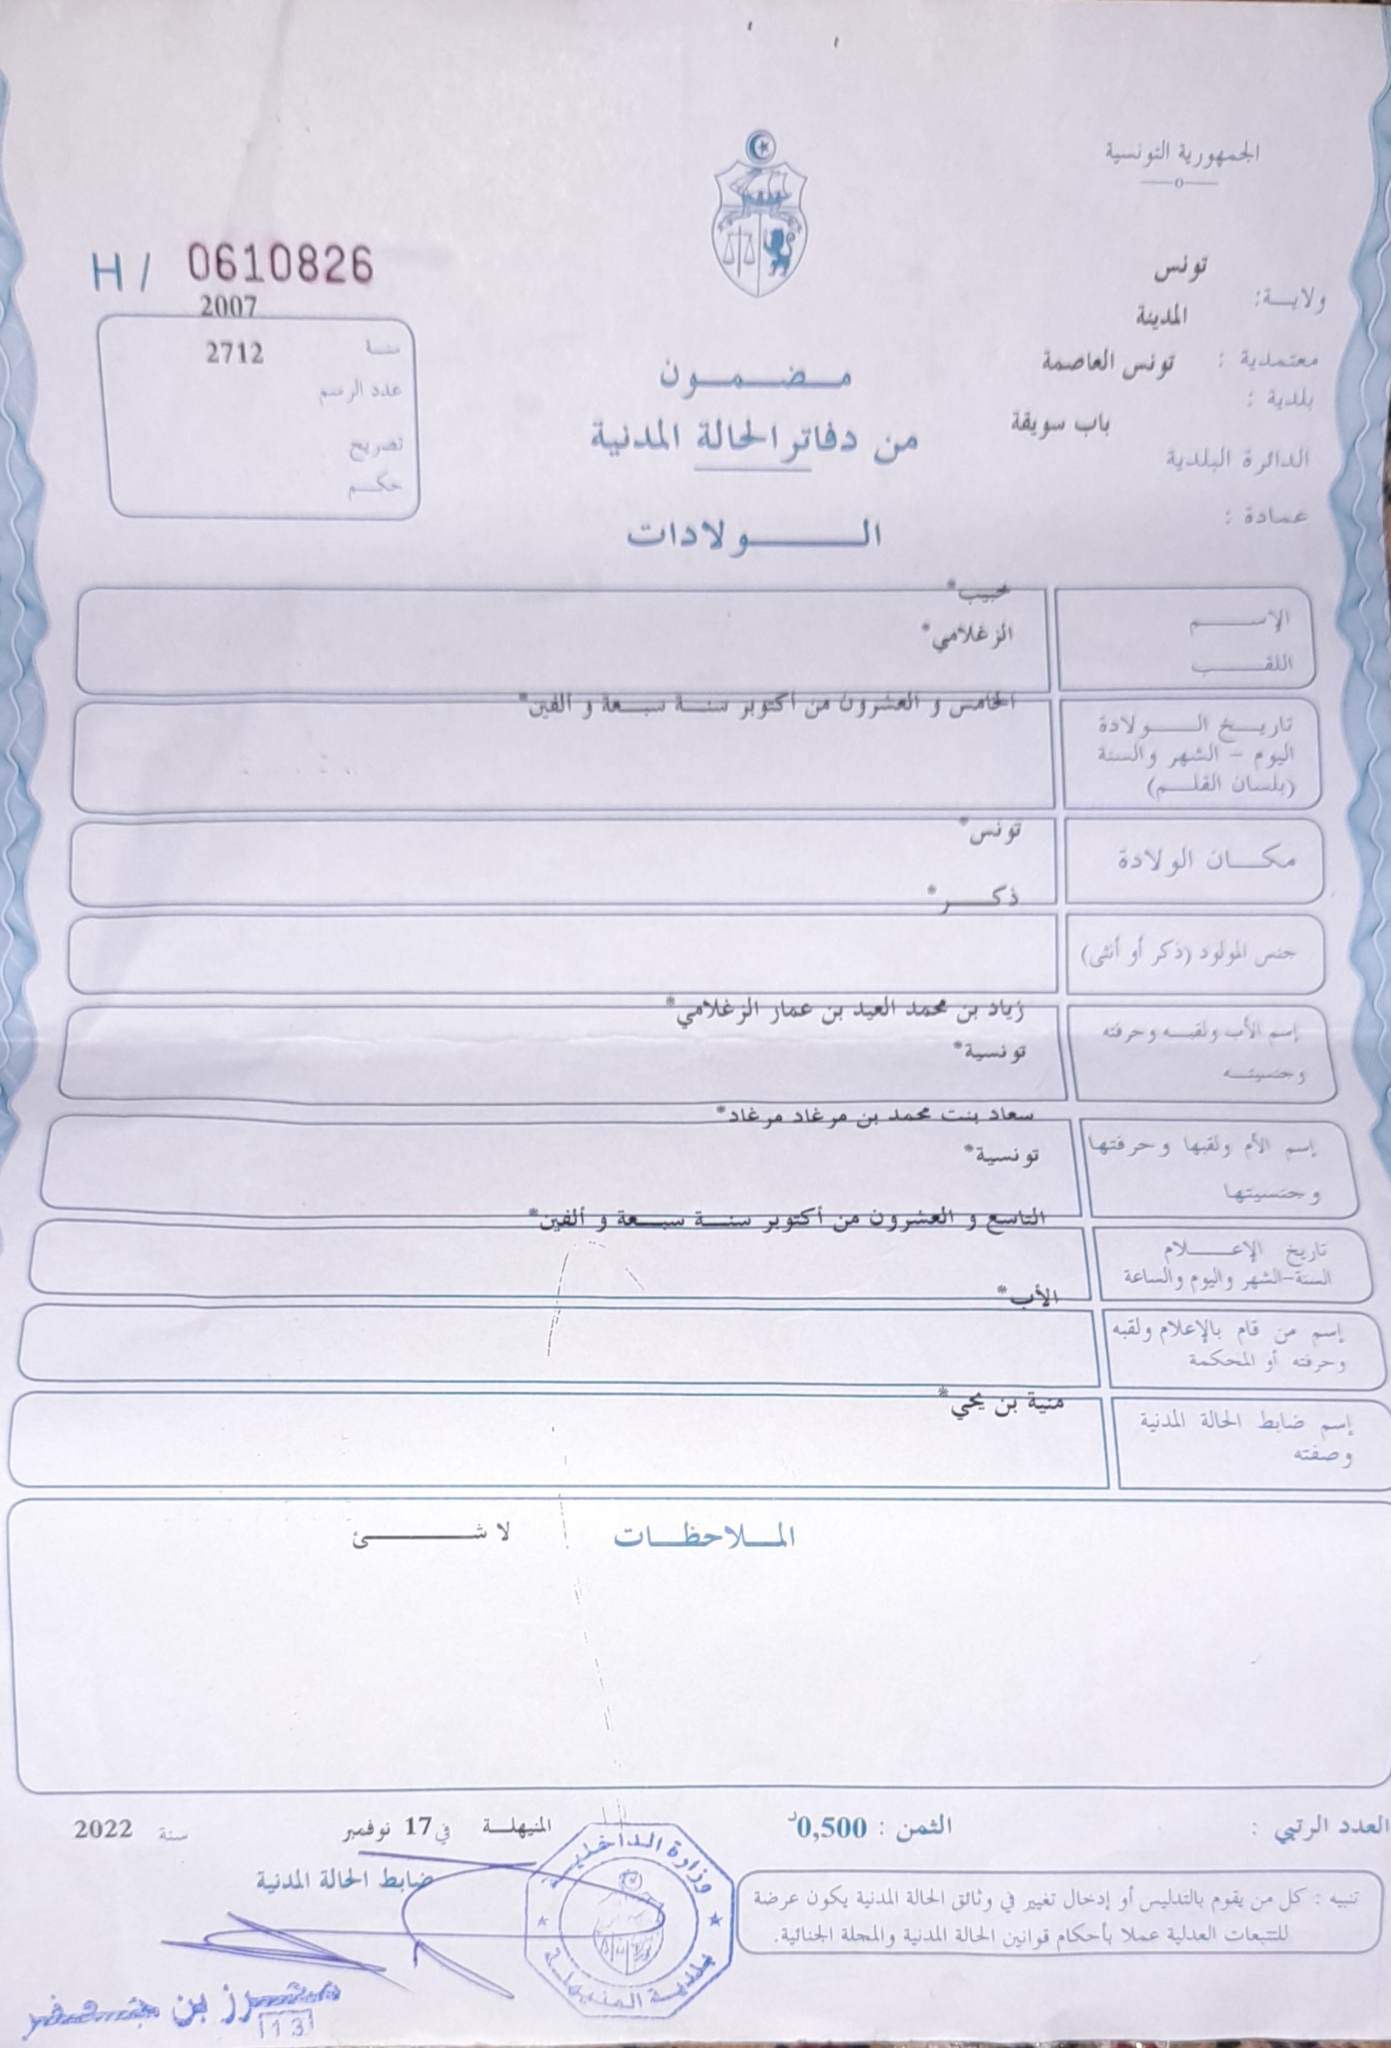 الجمهورية التونسية
H / 0610826
2007
سنة
2712
عدد الرسم
تصريح
حكم
تونس
ولاية:
المدينة
معتمدية :
تونس العاصمة
بلدية :
باب سويقة
الدائرة البلدية
عمادة :
مضمون
من دفاتر الحالة المدنية
الولادات
الإسم
اللقب
الزغلامي*
تاريخ الولادة
اليوم - الشهر والسنة
(بلسان القلم)
الخامس و العشرون من أكتوبر سنة سبعة و ألفين*
مكان الولادة
تونس*
جنس المولود (ذكر أو أنثى)
ذكر*
إسم الأب ولقبه وحرفته
وجنسيته
زياد بن محمد العيد بن عمار الزغلامي*
تونسية*
إسم الأم ولقبها وحرفتها
وجنسيتها
سعاد بنت محمد بن مرغاد مرغاد*
تونسية*
تاريخ الإعلام
السنة-الشهر واليوم والساعة
التاسع و العشرون من أكتوبر سنة سبعة و ألفين*
إسم من قام بالإعلام ولقبه
وحرفته أو المحكمة
الأب*
إسم ضابط الحالة المدنية
وصفته
منية بن يحي*
الملاحظات
لا شئ
العدد الرتبي :
الثمن : 0,500د
المنيهلة في 17 نوفمبر سنة 2022
ضابط الحالة المدنية
تنبيه : كل من يقوم بالتدليس أو إدخال تغيير في وثائق الحالة المدنية يكون عرضة
للتتبعات العدلية عملا بأحكام قوانين الحالة المدنية والمجلة الجنائية.
وزارة الداخلية
بلدية المنيهلة
بن
13